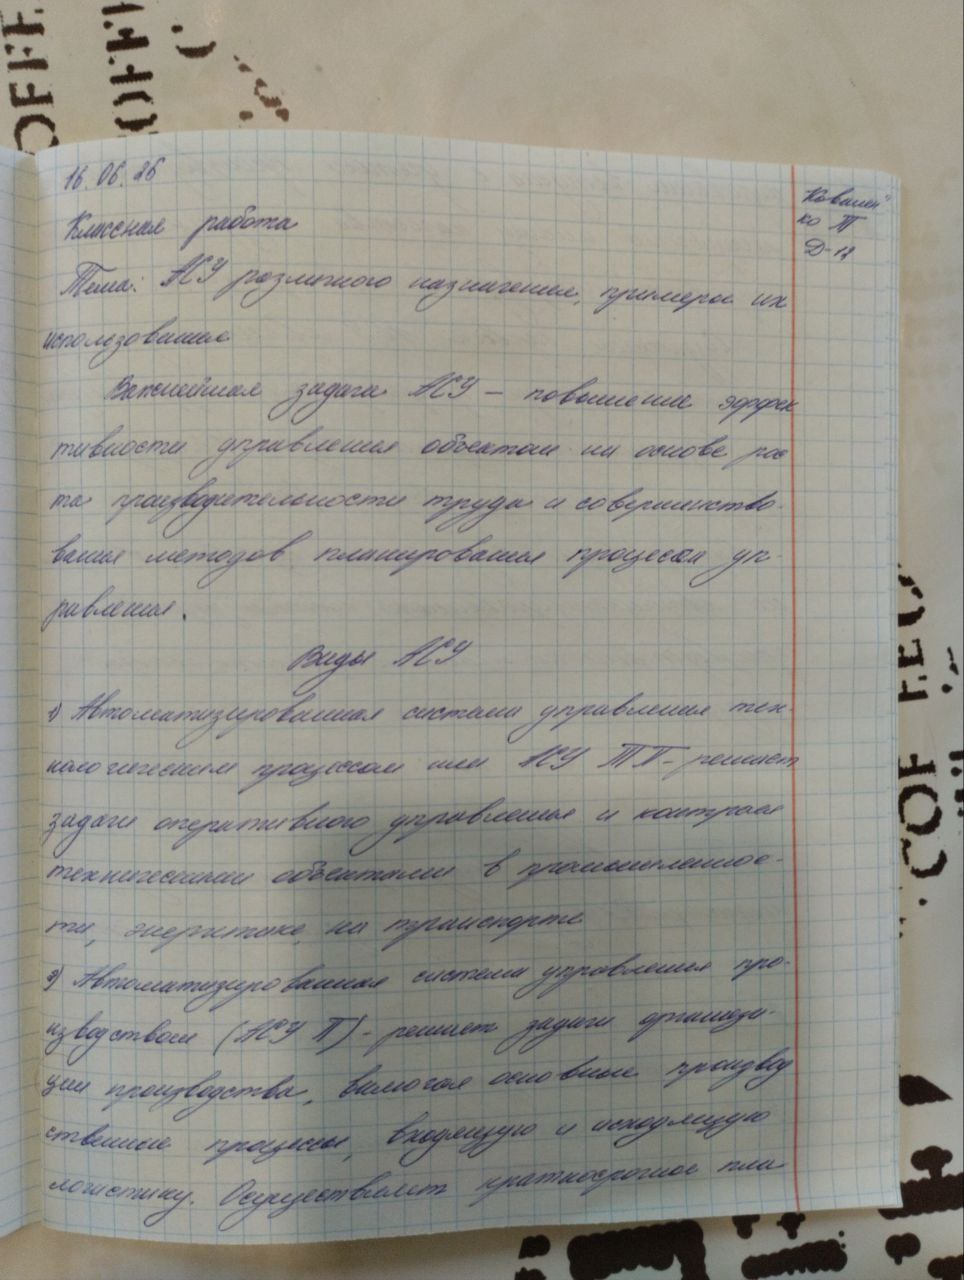 16.06.26
Классная работа
Тема: АСУ различного назначения, примеры их
использования
Ковален
ко Т
Д-12
Важнейшая задача АСУ – повышение эффек
тивности управления объектом на основе рос
та производительности труда и совершенство-
вания методов планирования процесса уп-
равления.
Виды АСУ
1) Автоматизированная система управления тех-
нологическим процессом или АСУ ТП - решает
задачи оперативного управления и контроля
техническими объектами в промышленнос-
ти, энергетике, на транспорте
2) Автоматизированная система управления про-
изводством (АСУ П) - решает задачи организа-
ции производства, включая основные производ
ственные процессы, входящую и исходящую
логистику. Осуществляет краткосрочное пла
OFFE
COFFEE